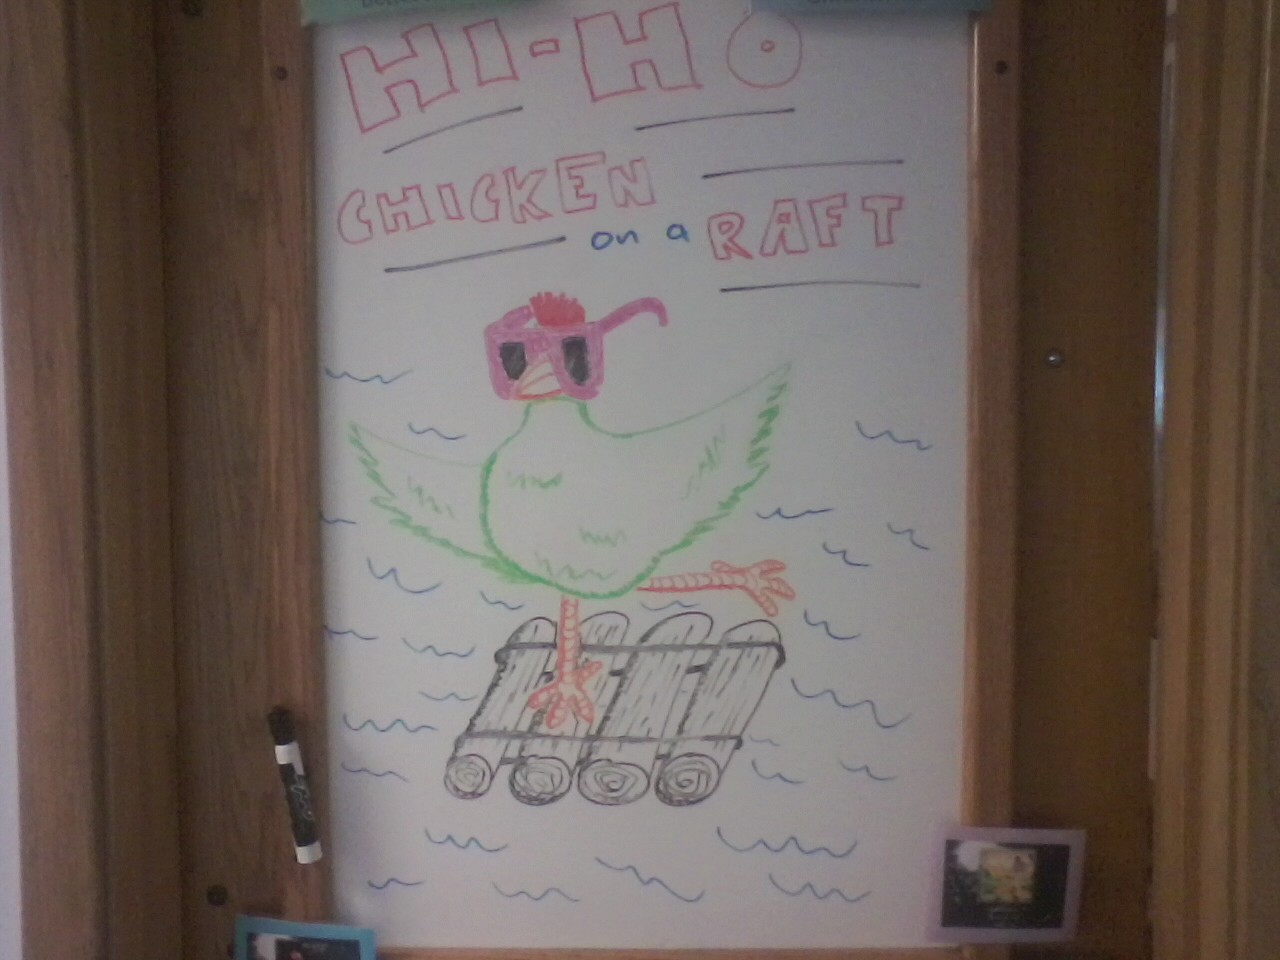 HI-HO
CHICKEN
on a RAFT